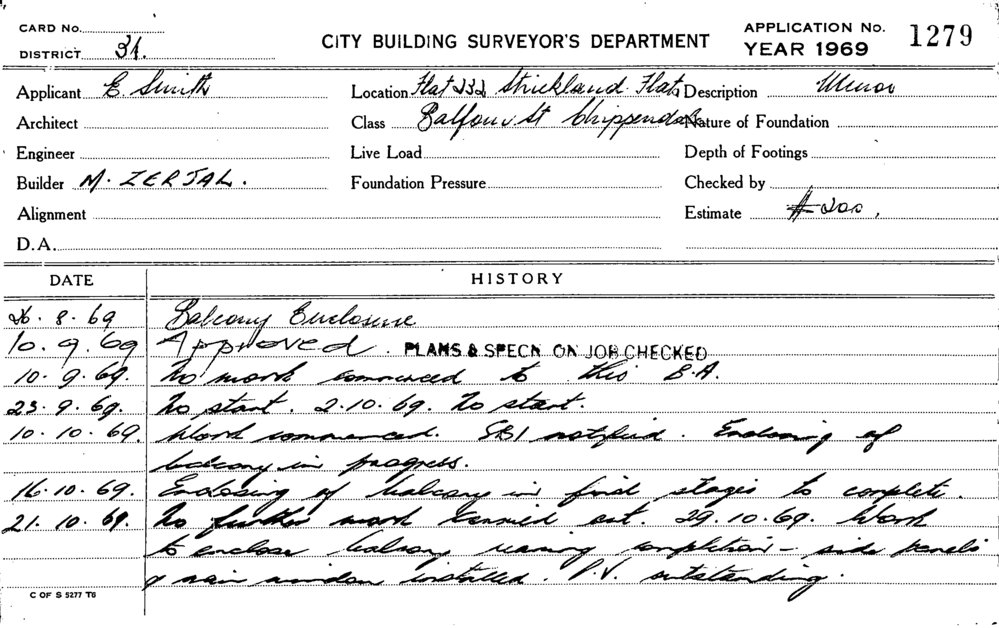 CARD No.
DISTRICT. 31.
CITY BUILDING SURVEYOR'S DEPARTMENT
APPLICATION No. 1279
YEAR 1969
Applicant E Smith Location Flat 232 Strickland Flats Description Minor
Architect Class Balfour St Chippendale Nature of Foundation
Engineer Live Load Depth of Footings
Builder M. ZERJAL. Foundation Pressure Checked by
Alignment Estimate $200.
D.A.
DATE HISTORY
26.8.69 Balcony Enclosure
10.9.69 Approved. PLANS & SPECN ON JOB CHECKED
10.9.69. No work commenced to this B.A.
23.9.69. No start. 2.10.69. No start.
10.10.69. Work commenced. SBI notified. Enclosing of
balcony in progress.
16.10.69. Enclosing of balcony in final stages to complete.
21.10.69. No further work carried out. 29.10.69. Work
to enclose balcony nearing completion - side panels
& main window installed. P.V. outstanding.
C OF S 5277 T8